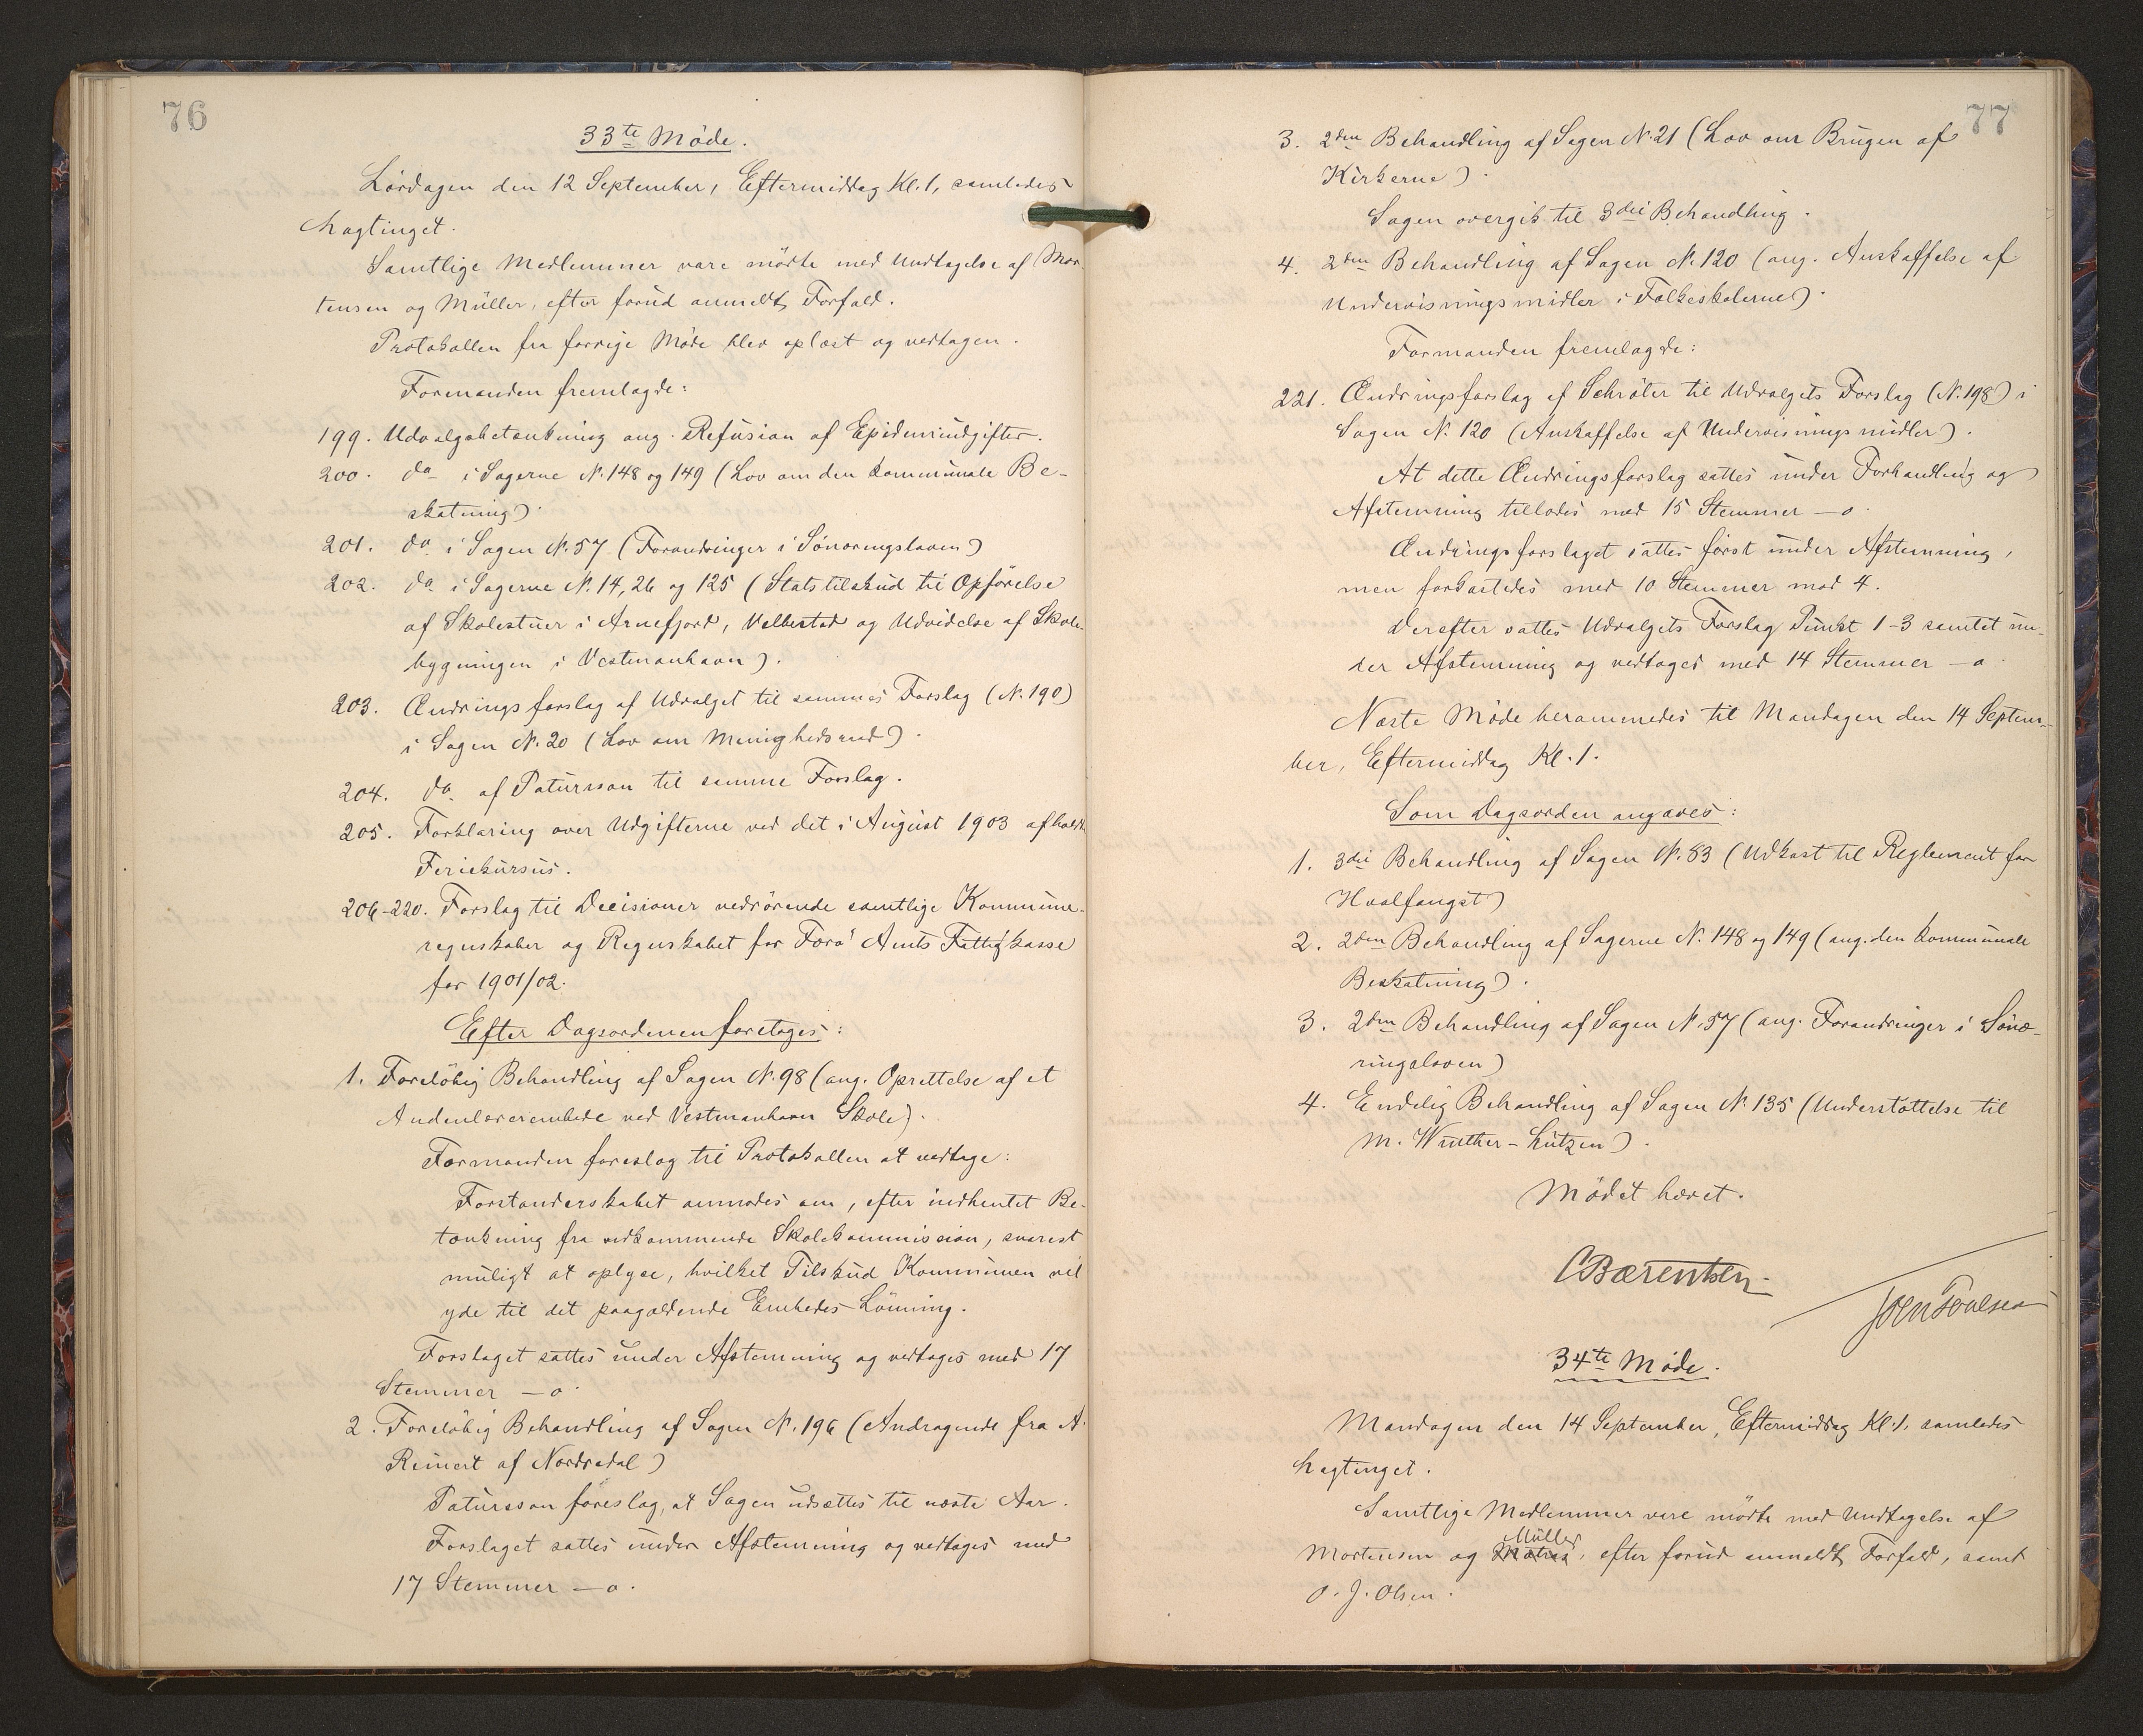 76
33te Möde.
Lördagen den 12 September, Eftermiddag Kl. 1, samledes
Lagtinget.
Samtlige Medlemmer vare mödte med Undtagelse af Mor-
tensen og Müller, efter forud anmeldt Forfald.
Protokollen fra forrige Möde blev oplæst og vedtagen.
Formanden fremlagde:
199. Udvalgsbetænkning ang. Refusion af Epidemiudgifter.
200. do i Sagerne N. 148 og 149 (Lov om den kommunale Be-
skatning).
201. do i Sagen N. 57 (Forandringer i Sönæringsloven)
202. do i Sagerne N. 14, 26 og 125 (Statstilskud til Opförelse
af Skolestuer i Arnefjord, Velbestad og Udvidelse af Skole-
bygningen i Vestmanhavn).
203. Ændringsforslag af Udvalget til sammes Forslag (N. 190)
i Sagen N. 20 (Lov om Menighedsraad).
204. do af Patursson til samme Forslag.
205. Forklaring over Udgifterne ved det i August 1903 afholdt
Feriekursus.
206-220. Forslag til Decisioner vedrörende samtlige Kommune-
regnskaber og Regnskabet for Færö Amts Fattigkasse
for 1901/02.
Efter Dagsordenen foretoges:
1. Forelöbig Behandling af Sagen N. 98 (ang. Oprettelse af et
Andenlærerembede ved Vestmanhavn Skole).
Formanden foreslog til Protokollen at vedtage:
Forstanderskabet anmodes om, efter indhentet Be-
tænkning fra vedkommende Skolekommission, snarest
muligt at oplyse, hvilket Tilskud Kommunen vil
yde til det paagældende Embedes Lönning.
Forslaget sattes under Afstemning og vedtoges med 17
Stemmer – o.
2. Forelöbig Behandling af Sagen N. 196 (Andragende fra A.
Reinert af Nordredal)
Patursson foreslog, at Sagen udsættes til næste Aar.
Forslaget sattes under Afstemning og vedtoges med
17 Stemmer – o.
77
3. 2den Behandling af Sagen N. 21 (Lov om Brugen af
Kirkerne).
Sagen overgik til 3die Behandling.
4. 2den Behandling af Sagen N. 120 (ang. Anskaffelse af
Undervisningsmidler i Folkeskolerne).
Formanden fremlagde:
221. Ændringsforslag af Schröter til Udvalgets Forslag (N. 198) i
Sagen N. 120 (Anskaffelse af Undervisningsmidler).
At dette Ændringsforslag sattes under Forhandling og
Afstemning tillodes med 15 Stemmer – o.
Ændringsforslaget sattes först under Afstemning,
men forkastedes med 10 Stemmer mod 4.
Derefter sattes Udvalgets Forslag Punkt 1-3 samlet un-
der Afstemning og vedtoges med 14 Stemmer – o.
Næste Möde berammedes til Mandagen den 14 Septem-
ber, Eftermiddag Kl. 1.
Som Dagsorden angaves:
1. 3die Behandling af Sagen N. 83 (Udkast til Reglement for
Hvalfangst)
2. 2den Behandling af Sagerne N. 148 og 149 (ang. den kommunale
Beskatning).
3. 2den Behandling af Sagen N. 57 (ang. Forandringer i Sönæ-
ringsloven)
4. Endelig Behandling af Sagen N. 135 (Understöttelse til
M. Winther-Lützen).
Mödet hævet.
C Bærentsen.
Joen Poulsen
34te Möde.
Mandagen den 14 September, Eftermiddag Kl. 1. samledes
Lagtinget.
Samtlige Medlemmer vare mödte med Undtagelse af
Müller
Mortensen og efter forud anmeldt Forfald, samt
O. J. Olsen.